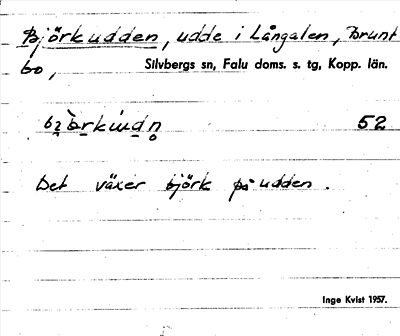 Björkudden, udde i Långalen, Brunt
bo, Silvbergs sn, Falu doms. s. tg, Kopp. län.
52
Det växer björk på udden.
Inge Kvist 1957.